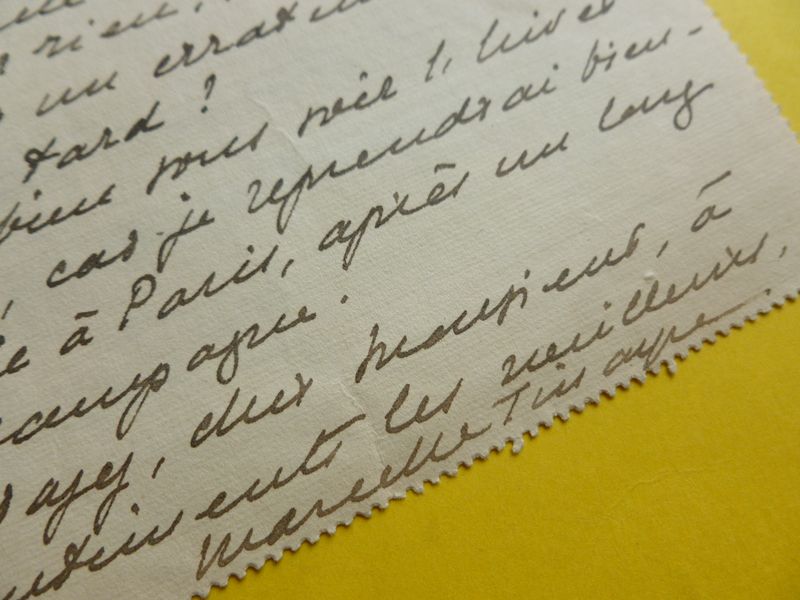 rien,
un erratum
tard ?
bien vous voir l'hiver
, car je reprendrai bien-
à Paris, après un long
campagne.
oyez, cher Monsieur, à
sentiments les meilleurs.
Marcelle Tinayre